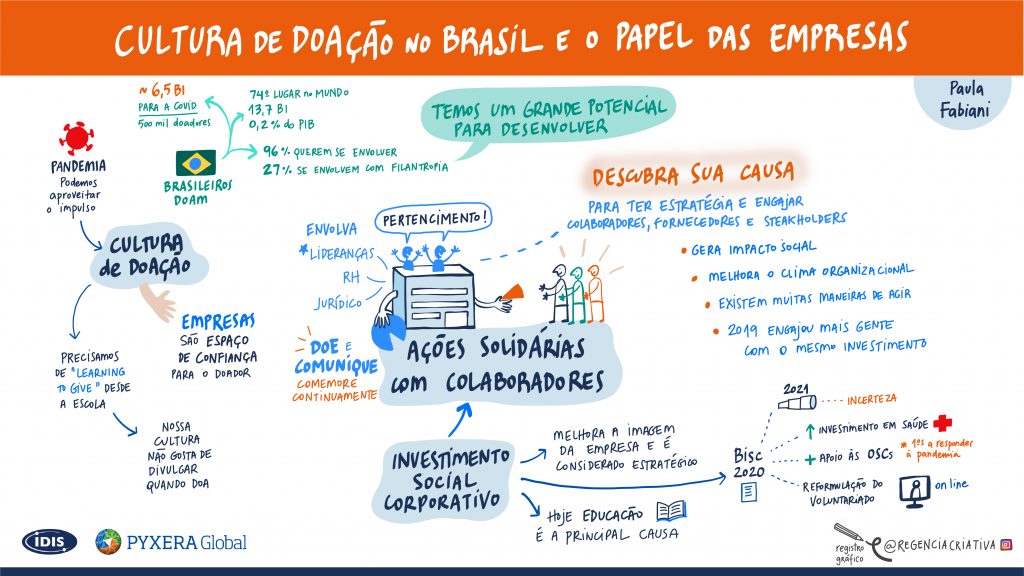 CULTURA DE DOAÇÃO NO BRASIL E O PAPEL DAS EMPRESAS
Paula
Fabiani
~ 6,5 BI
PARA A COVID
500 mil doadores
74º LUGAR no MUNDO
13,7 BI
0,2% do PIB
TEMOS UM GRANDE POTENCIAL
PARA DESENVOLVER
96% QUEREM SE ENVOLVER
27% SE ENVOLVEM COM FILANTROPIA
BRASILEIROS
DOAM
PANDEMIA
Podemos
aproveitar
o impulso
CULTURA
de DOAÇÃO
EMPRESAS
SÃO ESPAÇO
DE CONFIANÇA
PARA O DOADOR
PRECISAMOS
DE "LEARNING
TO GIVE" DESDE
A ESCOLA
NOSSA
CULTURA
NÃO GOSTA DE
DIVULGAR
QUANDO DOA
PERTENCIMENTO!
ENVOLVA
* LIDERANÇAS
RH
JURÍDICO
DOE E
COMUNIQUE
COMEMORE
CONTINUAMENTE
AÇÕES SOLIDÁRIAS
com COLABORADORES
DESCUBRA SUA CAUSA
PARA TER ESTRATÉGIA E ENGAJAR
COLABORADORES, FORNECEDORES E STEAKHOLDERS
• GERA IMPACTO SOCIAL
• MELHORA O CLIMA ORGANIZACIONAL
• EXISTEM MUITAS MANEIRAS DE AGIR
• 2019 ENGAJOU MAIS GENTE
COM O MESMO INVESTIMENTO
INVESTIMENTO
SOCIAL
CORPORATIVO
MELHORA A IMAGEM
DA EMPRESA E É
CONSIDERADO ESTRATÉGICO
HOJE EDUCAÇÃO
É A PRINCIPAL CAUSA
BISC
2020
2021
INCERTEZA
INVESTIMENTO EM SAÚDE
+ APOIO ÀS OSCs
* 1ºs a responder
à pandemia
REFORMULAÇÃO DO
VOLUNTARIADO
on line
IDIS
PYXERA Global
registro
gráfico
@REGENCIACRIATIVA